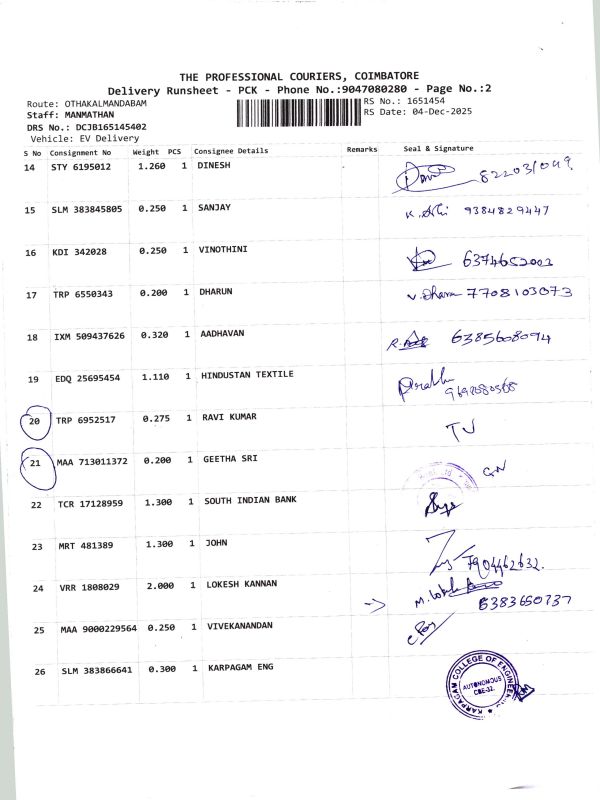 THE PROFESSIONAL COURIERS, COIMBATORE
Delivery Runsheet - PCK - Phone No.:9047080280 - Page No.:2
Route: OTHAKALMANDABAM
RS No.: 1651454
Staff: MANMATHAN
RS Date: 04-Dec-2025
DRS No.: DCJB165145402
Vehicle: EV Delivery
S No Consignment No Weight PCS Consignee Details Remarks Seal & Signature
14 STY 6195012 1.260 1 DINESH
15 SLM 383845805 0.250 1 SANJAY 9384829447
16 KDI 342028 0.250 1 VINOTHINI 6374652002
17 TRP 6550343 0.200 1 DHARUN V. Dharun 7708103073
18 IXM 509437626 0.320 1 AADHAVAN 6385608094
19 EDQ 25695454 1.110 1 HINDUSTAN TEXTILE Prabhu
20 TRP 6952517 0.275 1 RAVI KUMAR TJ
21 MAA 713011372 0.200 1 GEETHA SRI GN
22 TCR 17128959 1.300 1 SOUTH INDIAN BANK
23 MRT 481389 1.300 1 JOHN 7904462632.
24 VRR 1808029 2.000 1 LOKESH KANNAN M. Lokesh
6383660737
25 MAA 9000229564 0.250 1 VIVEKANANDAN
26 SLM 383866641 0.300 1 KARPAGAM ENG
KARPAGAM COLLEGE OF ENGINEERING
AUTONOMOUS
CBE-32.